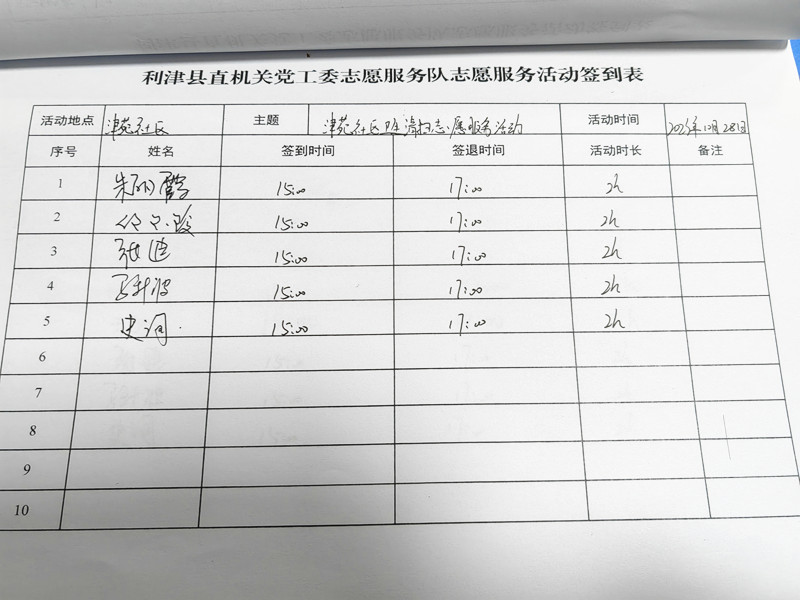 利津县直机关党工委志愿服务队志愿服务活动签到表
活动地点 津苑社区 主题 津苑社区卫生清扫志愿服务活动 活动时间 12月28日
序号 姓名 签到时间 签退时间 活动时长 备注
1 15:00 17:00 2h
2 15:00 17:00 2h
3 张建 15:00 17:00 2h
4 15:00 17:00 2h
5 史润 15:00 17:00 2h
6
7
8
9
10